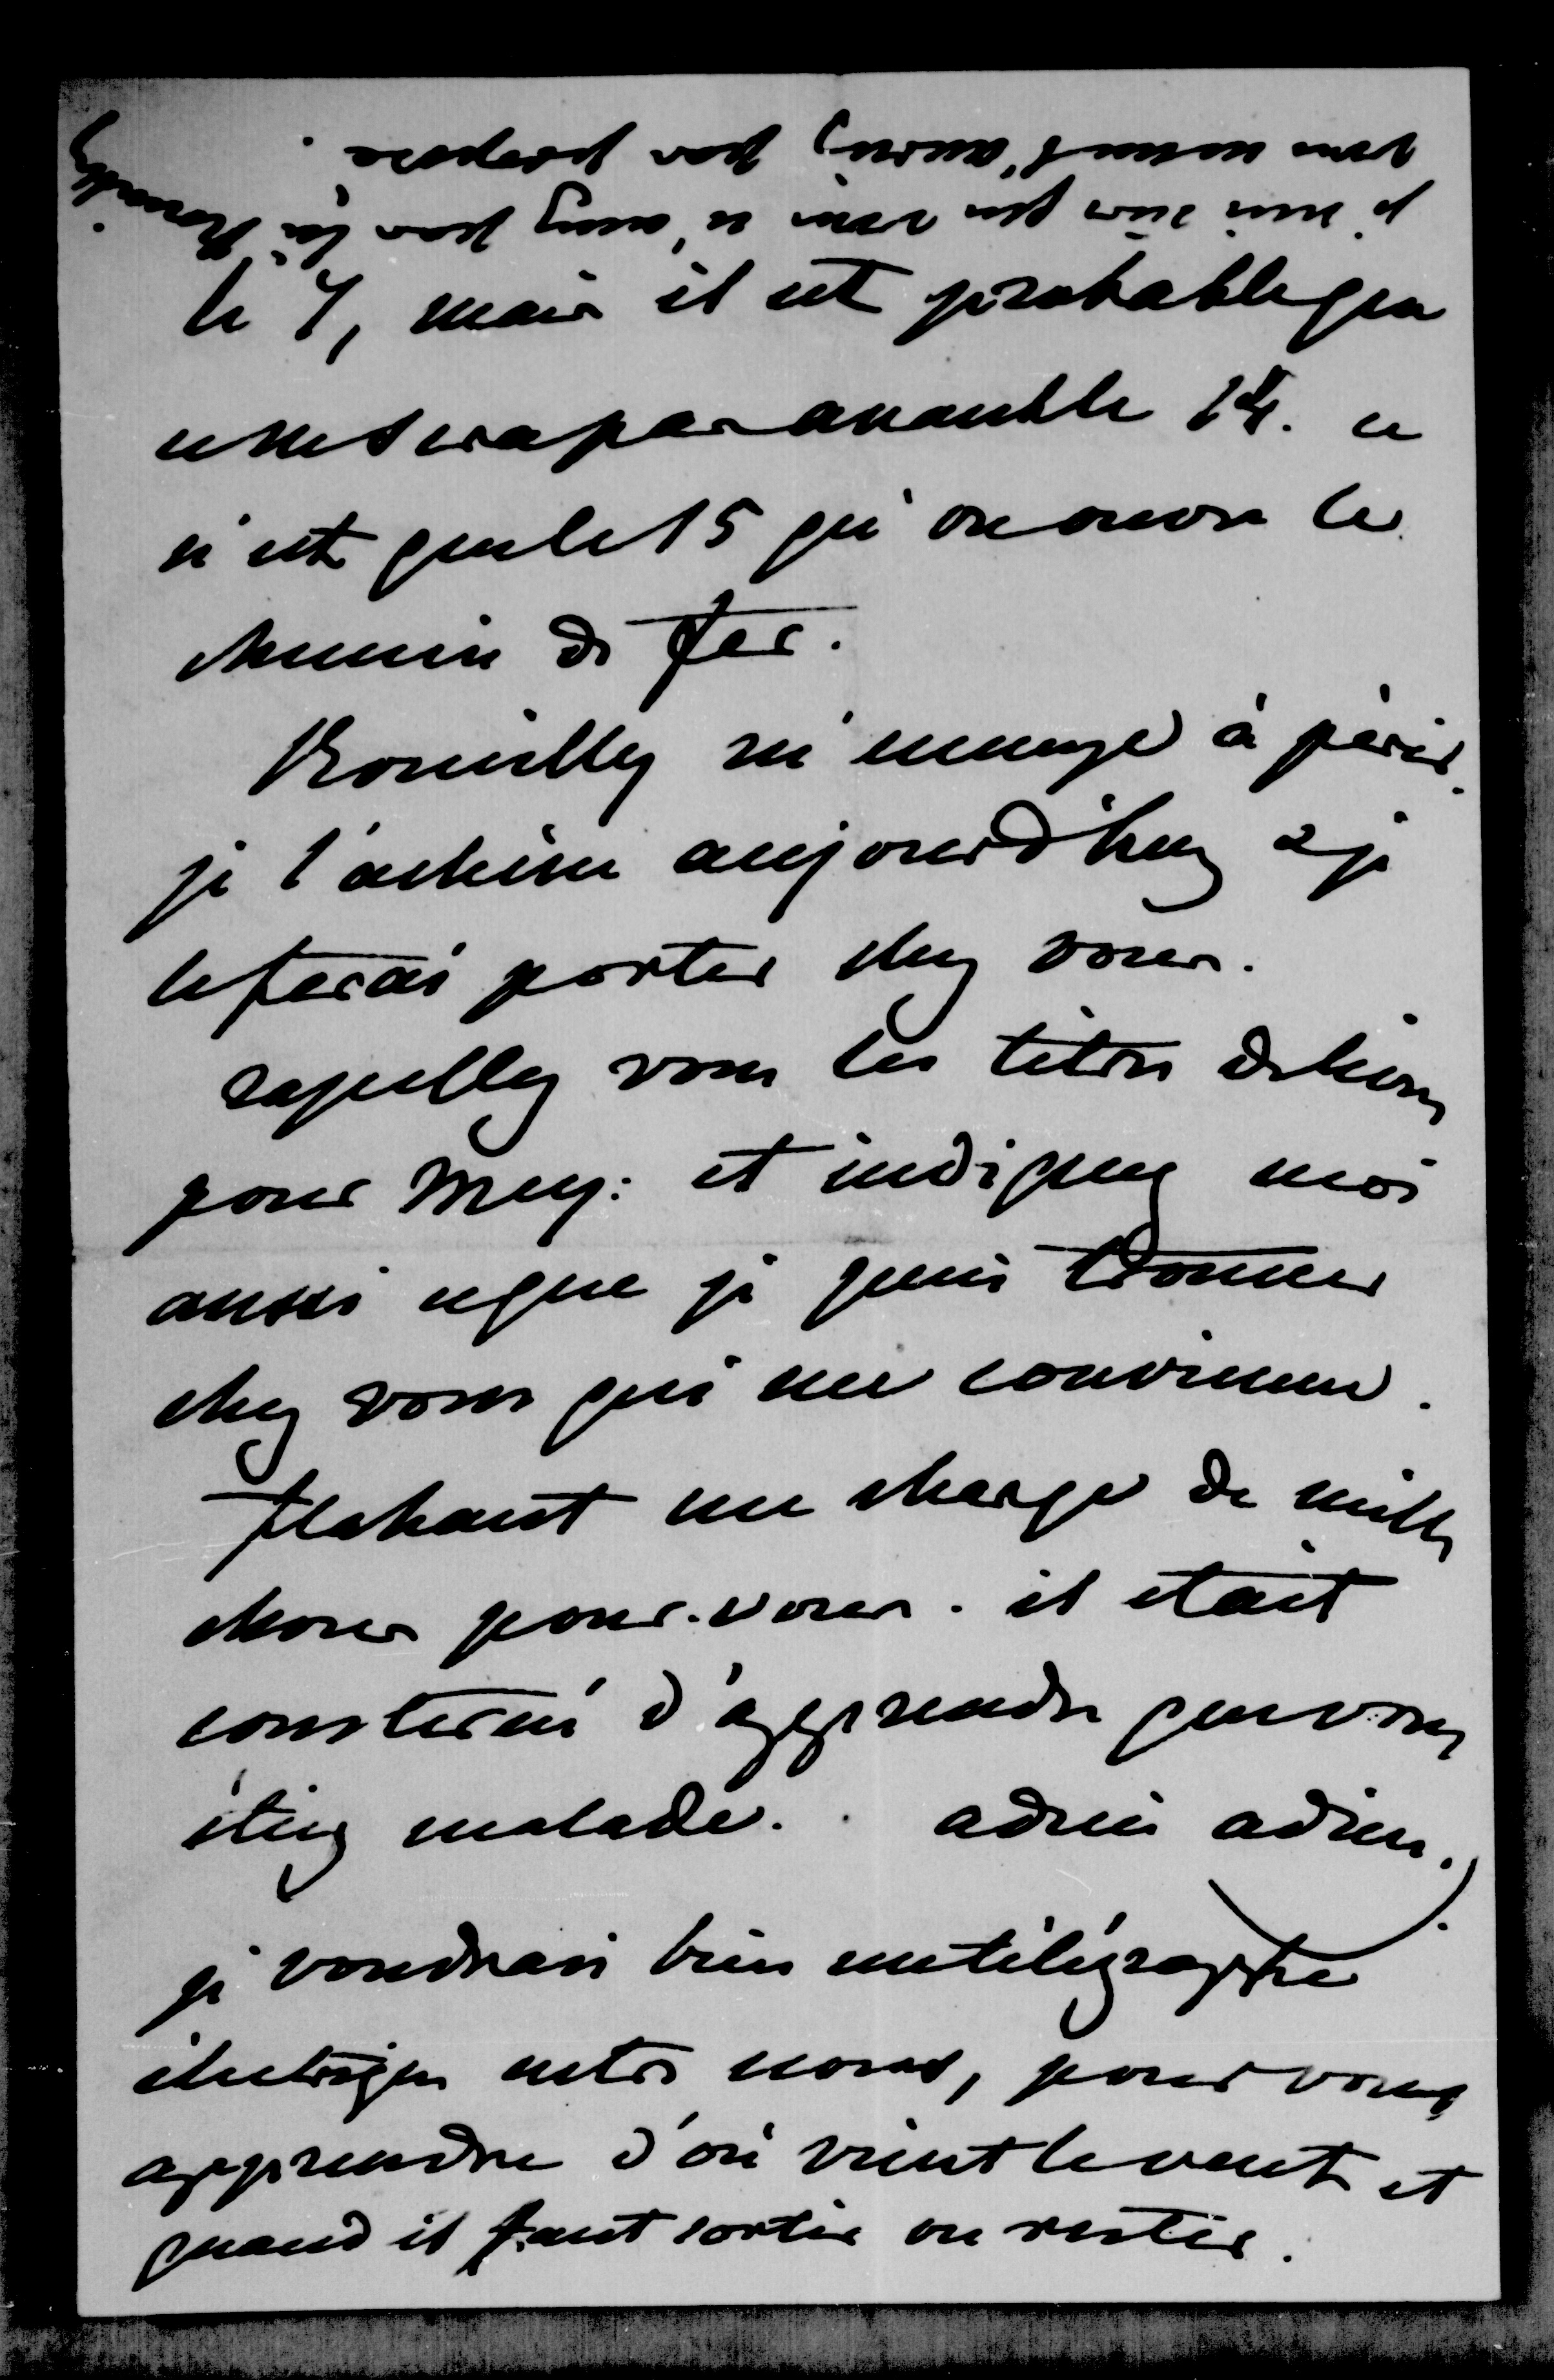 le 7, mais il est probable que
ce ne sera pas avant le 14. ce
n'est que le 15 qu'on ouvre le
chemin de fer.
Romilly m'ennuye à périr.
je l'acheve aujourd'huy & je
le ferai porter chez vous.
rapellez vous les titres de livres
pour Mey: et indiquez moi
aussi ce que je puis trouver
chez vous qui me convienne.
Flahaut me charge de mille
choses pour vous. il etait
consterné d'apprendre que vous
étiez malade. adieu adieu.
je voudrais bien un télégraphe
électrique entre nous, pour vous
apprendre d'où vient le vent et
quand il faut sortir ou rester.
je suis sûre que vous n'avez pas lu Romilly
vous ne me l'auriez pas proposé.